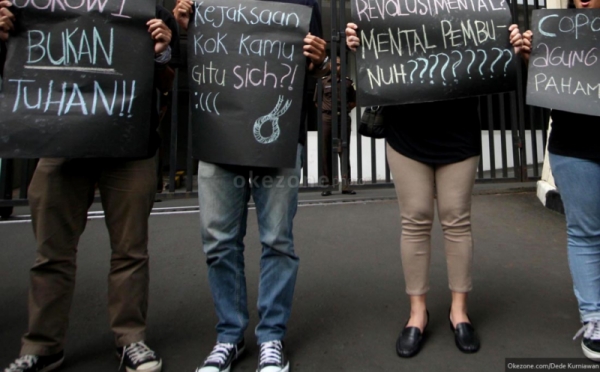 JOKOWI
BUKAN
TUHAN!!
KEJAKSAAN
KOK KAMU
GITU SICH?!
:((((
REVOLUSI MENTAL?
MENTAL PEMBU-
NUH????????
COPO
AGUNG
PAHAM
okezone
Okezone.com/Dede Kurniawan